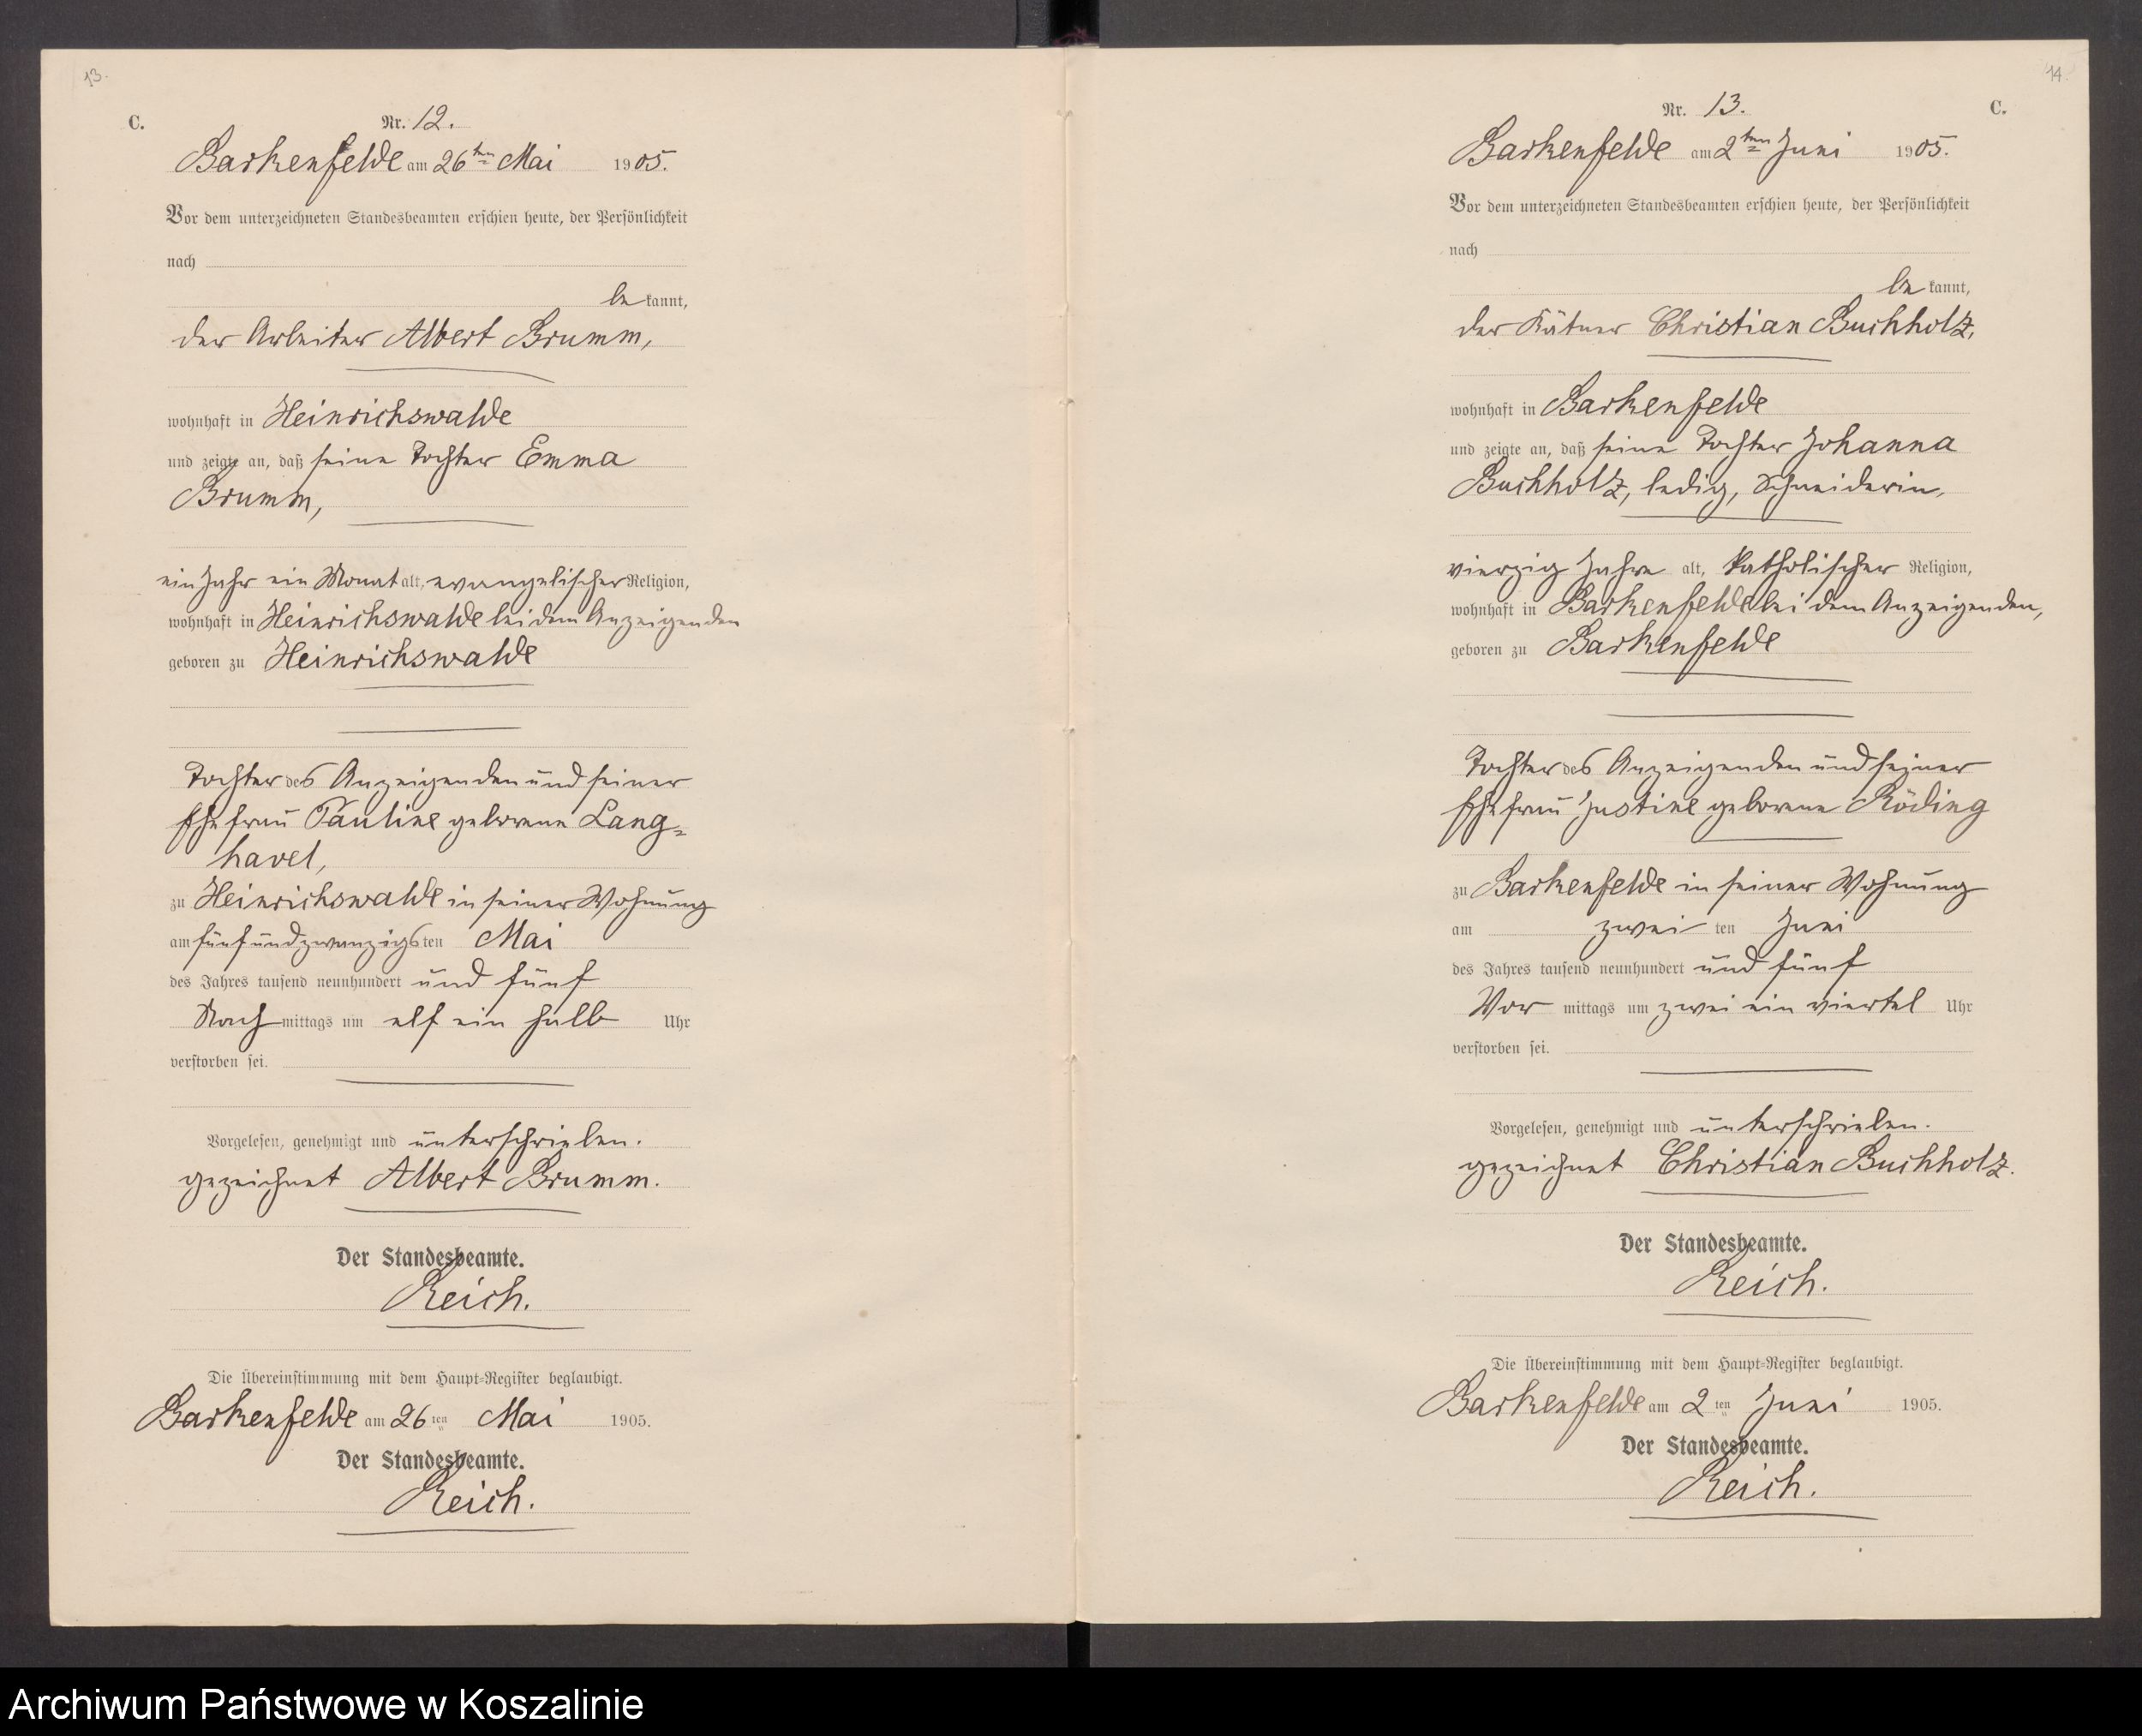 13.
C.
Nr. 12.
Barkenfelde am 26ten Mai 1905.
Vor dem unterzeichneten Standesbeamten erschien heute, der Persönlichkeit
nach
be kannt,
der Arbeiter Albert Brumm,
wohnhaft in Heinrichswalde
und zeigte an, daß seine Tochter Emma
Brumm,
ein Jahr ein Monat alt, evangelischer Religion,
wohnhaft in Heinrichswalde bei dem Anzeigenden
geboren zu Heinrichswalde
Tochter des Anzeigenden und seiner
Ehefrau Pauline geborene Lang=
havel,
zu Heinrichswalde in seiner Wohnung
am fünfundzwanzigsten Mai
des Jahres tausend neunhundert und fünf
Nach mittags um elf ein halb Uhr
verstorben sei.
Vorgelesen, genehmigt und unterschrieben.
gezeichnet Albert Brumm.
Der Standesbeamte.
Reich.
Die Übereinstimmung mit dem Haupt=Register beglaubigt.
Barkenfelde am 26ten Mai 1905.
Der Standesbeamte.
Reich.
14.
Nr. 13.
C.
Barkenfelde am 2ten Juni 1905.
Vor dem unterzeichneten Standesbeamten erschien heute, der Persönlichkeit
nach
be kannt,
der Kätner Christian Buchholz,
wohnhaft in Barkenfelde
und zeigte an, daß seine Tochter Johanna
Buchholz, ledig, Schneiderin,
vierzig Jahre alt, katholischer Religion,
wohnhaft in Barkenfelde bei dem Anzeigenden,
geboren zu Barkenfelde
Tochter des Anzeigenden und seiner
Ehefrau Justine geborene Röding
zu Barkenfelde in seiner Wohnung
am zwei ten Juni
des Jahres tausend neunhundert und fünf
Vor mittags um zwei ein viertel Uhr
verstorben sei.
Vorgelesen, genehmigt und unterschrieben.
gezeichnet Christian Buchholz.
Der Standesbeamte.
Reich.
Die Übereinstimmung mit dem Haupt=Register beglaubigt.
Barkenfelde am 2 ten Juni 1905.
Der Standesbeamte.
Reich.
Archiwum Państwowe w Koszalinie